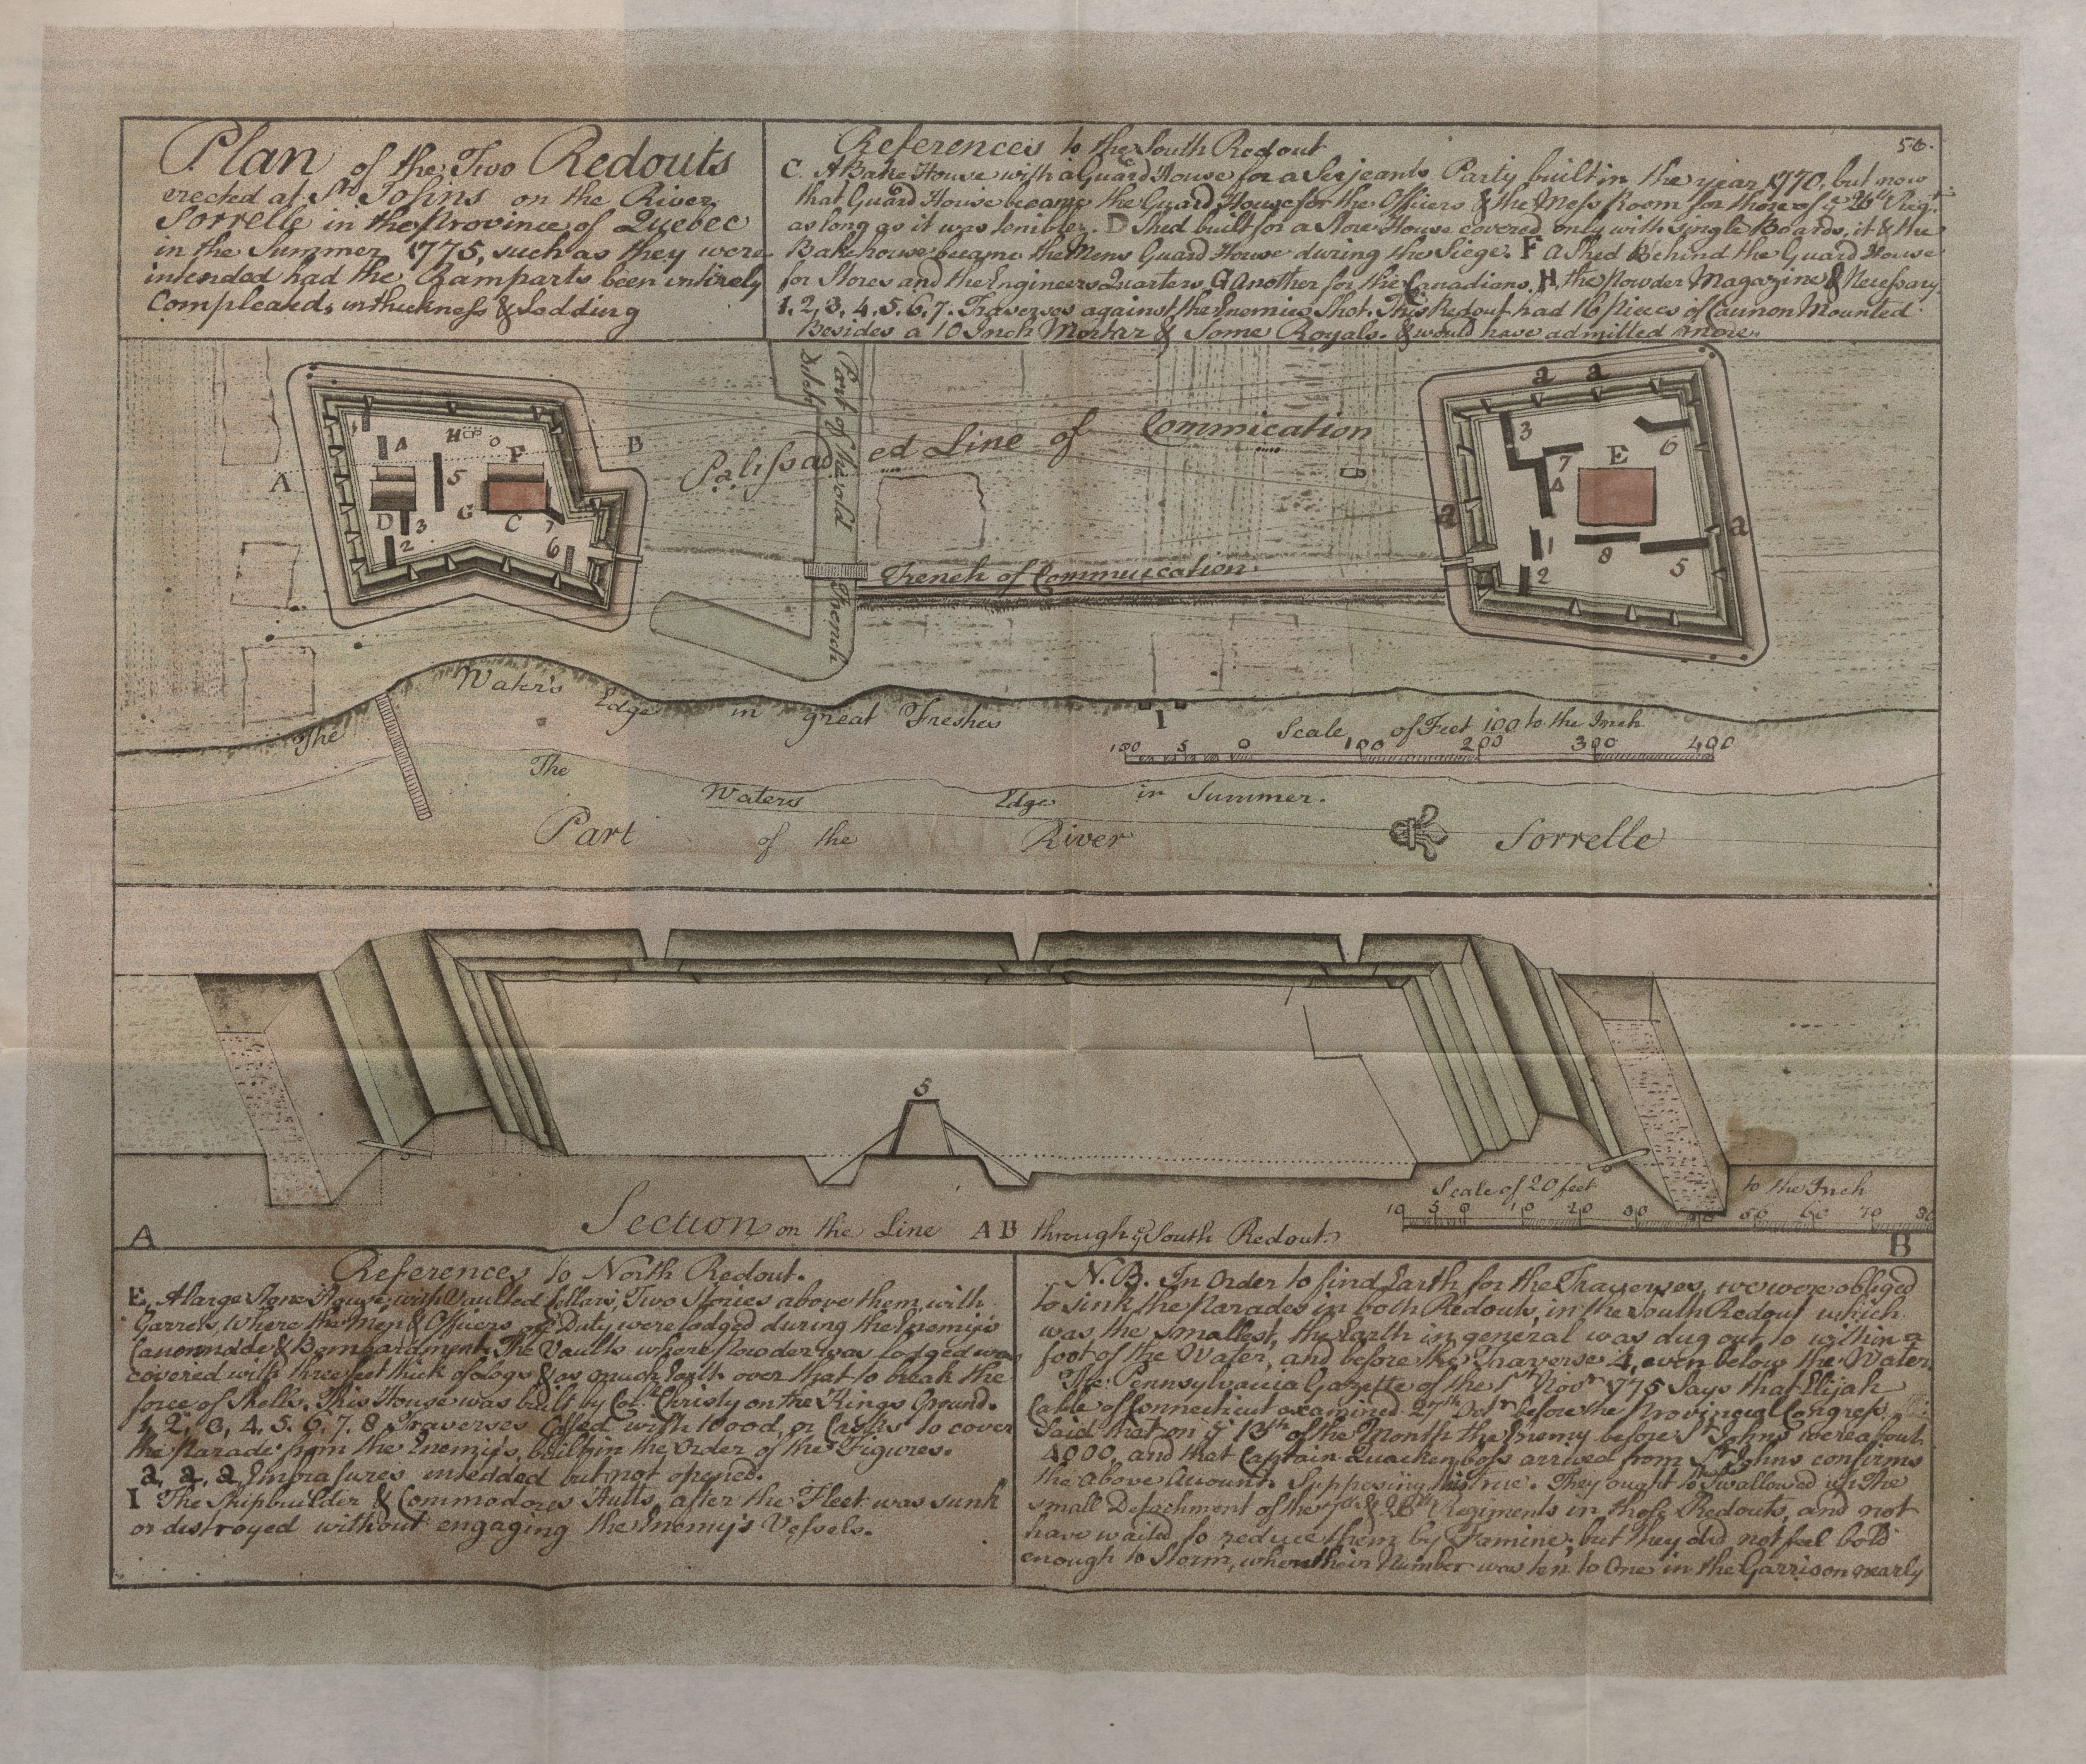 Plan of the Two Redouts
erected at St. Johns on the River
Sorrelle in the Province of Quebec
in the Summer 1775, such as they were
intended had the Ramparts been intirely
Compleated, in thickness & Sodding
References to the South Redout
50.
C. A Bake House with a Guard House for a Serjeants Party built in the year 1770, but now
that Guard House became the Guard House for the Officers & the Mess Room for those of ye 26th Regt.
as long as it was tenible. D Shed built for a Store House covered only with single Boards, it & the
Bakehouse became the Mens Guard House during the Siege. F a Shed Behind the Guard House
for Stores and the Engineers Quarters. G Another for the Canadians. H, the Powder Magazine & Necessary
1. 2, 3, 4. 5. 6. 7. Traverses against the Enemies Shot. This Redout had 16 Pieces of Cannon Mounted
Besides a 10 Inch Mortar & Some Royals. & would have admitted more.
Part of the old French
Ditch
Palissaded Line of Commication
Trench of Commucication
A
B
1
4
H
o
F
5
D
3
G
C
7
2
6
a a
3
6
7
E
4
a
a
1
8
5
2
The Water's Edge in great Freshes
I
Scale of Feet 100 to the Inch
100 5 0 100 200 300 400
The Waters Edge in Summer.
Part of the River Sorrelle
5
Scale of 20 feet to the Inch
10 5 0 10 20 30 40 50 60 70 80
A
Section on the Line A B through ye South Redout.
B
References to North Redout.
E, A large Stone House, with Vaulted Cellars, Two Stories above them, with
Garrets, Where the Men & Officers off Duty were lodged during the Enemy's
Cannonade & Bombardment. The Vaults where Powder was lodged was
covered with three feet thick of logs & as much Earth over that to break the
force of Shells. This House was built by Col. Christy on the Kings Ground.
1, 2, 3, 4. 5. 6. 7. 8 Traverses Cassed with Wood, or Casks to cover
the Parade from the Enemy's, built in the Order of the Figures.
a, a, a, Embrasures intedded but not opened.
I The Shipbuilder & Commodores Hutts, after the Fleet was sunk
or destroyed without engaging the Enemy's Vessels.
N.B. In Order to find Earth for the Traverses, we were obliged
to sink the Parades in both Redouts, in the South Redout which
was the smallest, the Earth in general was dug out to within a
foot of the Water, and before the Traverse 4, even below the Water
The Pennsylvania Gazette of the 1st Novr. 1775 Says that Elijah
Cable of Connecticut examined 27th Octr. before the Provincial Congress
Said that on ye 13th of the Month the Enemy before St. Johns were about
4000, and that Captain Quackenboss arrived from St. Johns confirms
the above Account. Supposing this true. They ought to Swallowed up the
small Detachment of the 7th & 26th Regiments in those Redouts, and not
have waited to reduce them by Famine; but they did not feel bold
enough to Storm, when their Number was ten to One in the Garrison nearly